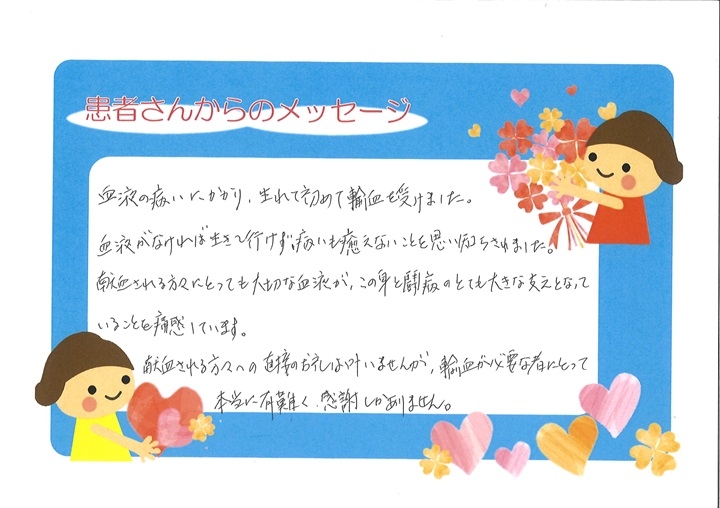 患者さんからのメッセージ
血液の病いにかかり、生れて初めて輸血を受けました。
血液がなければ生きて行けず、病いも癒えないことを思い知らされました。
献血される方々にとっても大切な血液が、この身と闘病のとても大きな支えとなって
いることを痛感しています。
献血される方々への直接のお礼は叶いませんが、輸血が必要な者にとって
本当に有難く、感謝しかありません。